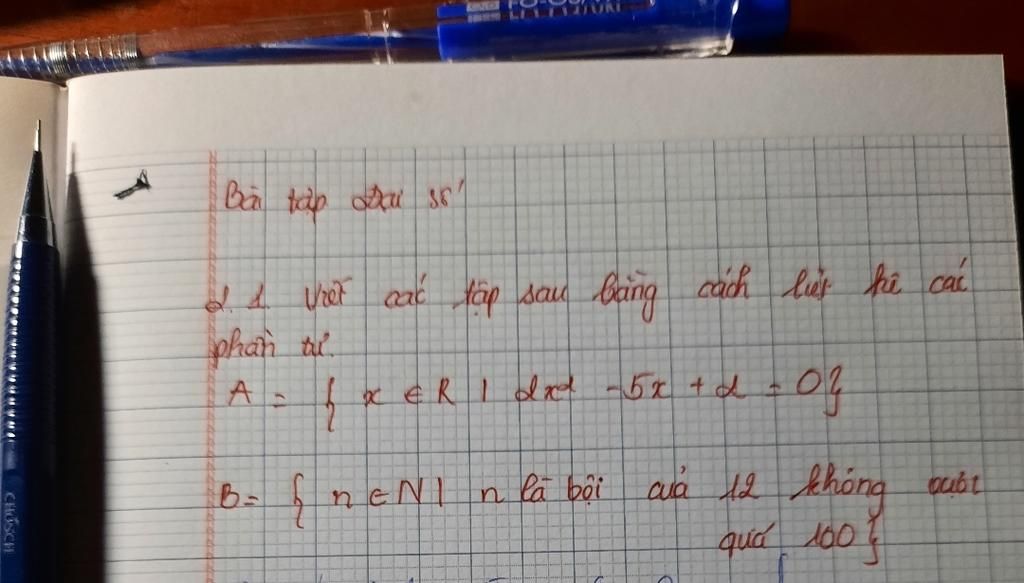 Bài tập đại số
2.1 Viết các tập sau bằng cách liệt kê các
phần tử.
A = { x ∈ R | 2x2 - 5x + 2 = 0}
B = { n ∈ N | n là bội của 12 không vượt
quá 100}